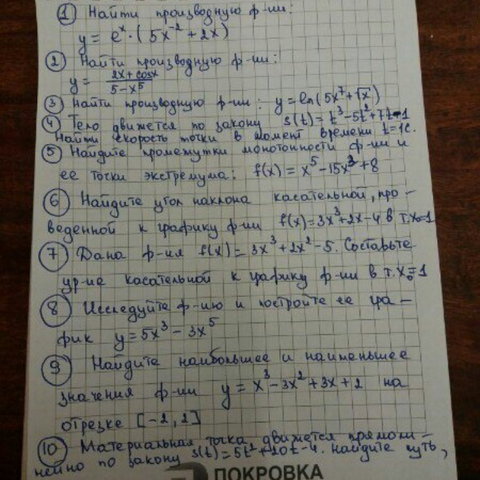 1 Найти производную ф-ии:
y = eˣ · (5x⁻² + 2x)
2 Найти производную ф-ии:
y = (2x + cosx)/(5 - x⁵)
3 Найти производную ф-ии: y = ln(5x⁷ + √x)
4 Тело движется по закону s(t) = t³ - 5t² + 7t - 1
Найти скорость точки в момент времени t = 1с.
5 Найдите промежутки монотонности ф-ии и
ее точки экстремума: f(x) = x⁵ - 15x³ + 8
6 Найдите угол наклона касательной, про-
веденной к графику ф-ии f(x) = 3x³ + 2x - 4 в т. x₀ = 1
7 Дана ф-ия f(x) = 3x³ + 2x² - 5. Составьте
ур-ие касательной к графику ф-ии в т. x₀ = 1
8 Исследуйте ф-ию и постройте ее гра-
фик y = 5x³ - 3x⁵
9 Найдите наибольшее и наименьшее
значения ф-ии y = x³ - 3x² + 3x + 2 на
отрезке [-2, 2]
10 Материальная точка движется прямоли-
нейно по закону s(t) = 5t² + 20t - 4. Найдите путь,
ПОКРОВКА